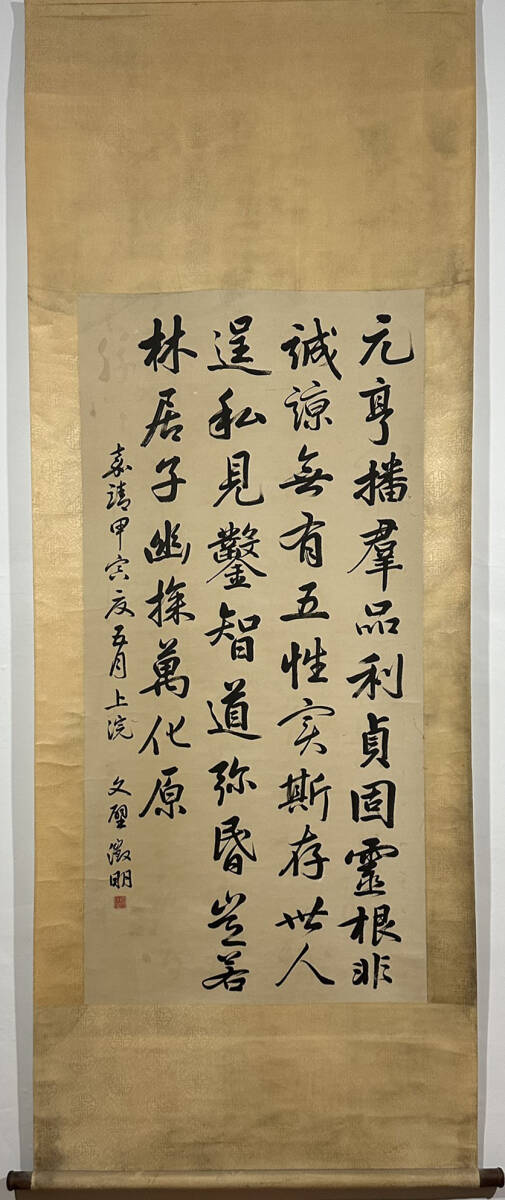 元亨播羣品利貞固靈根非
誠諒無有五性实斯存世人
逞私見鑿智道弥昏豈若
林居子幽探萬化原
嘉靖甲寅夏五月上浣 文璧徵明